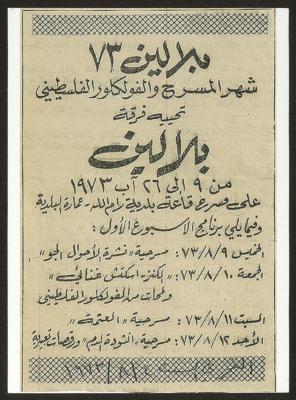 بلالين ٧٣
شهر المسرح والفولكلور الفلسطيني
تحييه فرقة
بلالين
من ٩ الى ٢٦ آب ١٩٧٣
على مسرح قاعة بلدية رام الله - عمارة البلدية
وفيما يلي برنامج الاسبوع الأول :
الخميس ٧٣/٨/٩ : مسرحية " نشرة الأحوال الجو "
الجمعة ٧٣/٨/١٠ : " الكنز " اسكتش غنائي
ولوحات من الفولكلور الفلسطيني
السبت ٧٣/٨/١١ : مسرحية " العتمة "
الأحد ٧٣/٨/١٢ : مسرحية " انشودة الدم " ورقصات تعبيرية